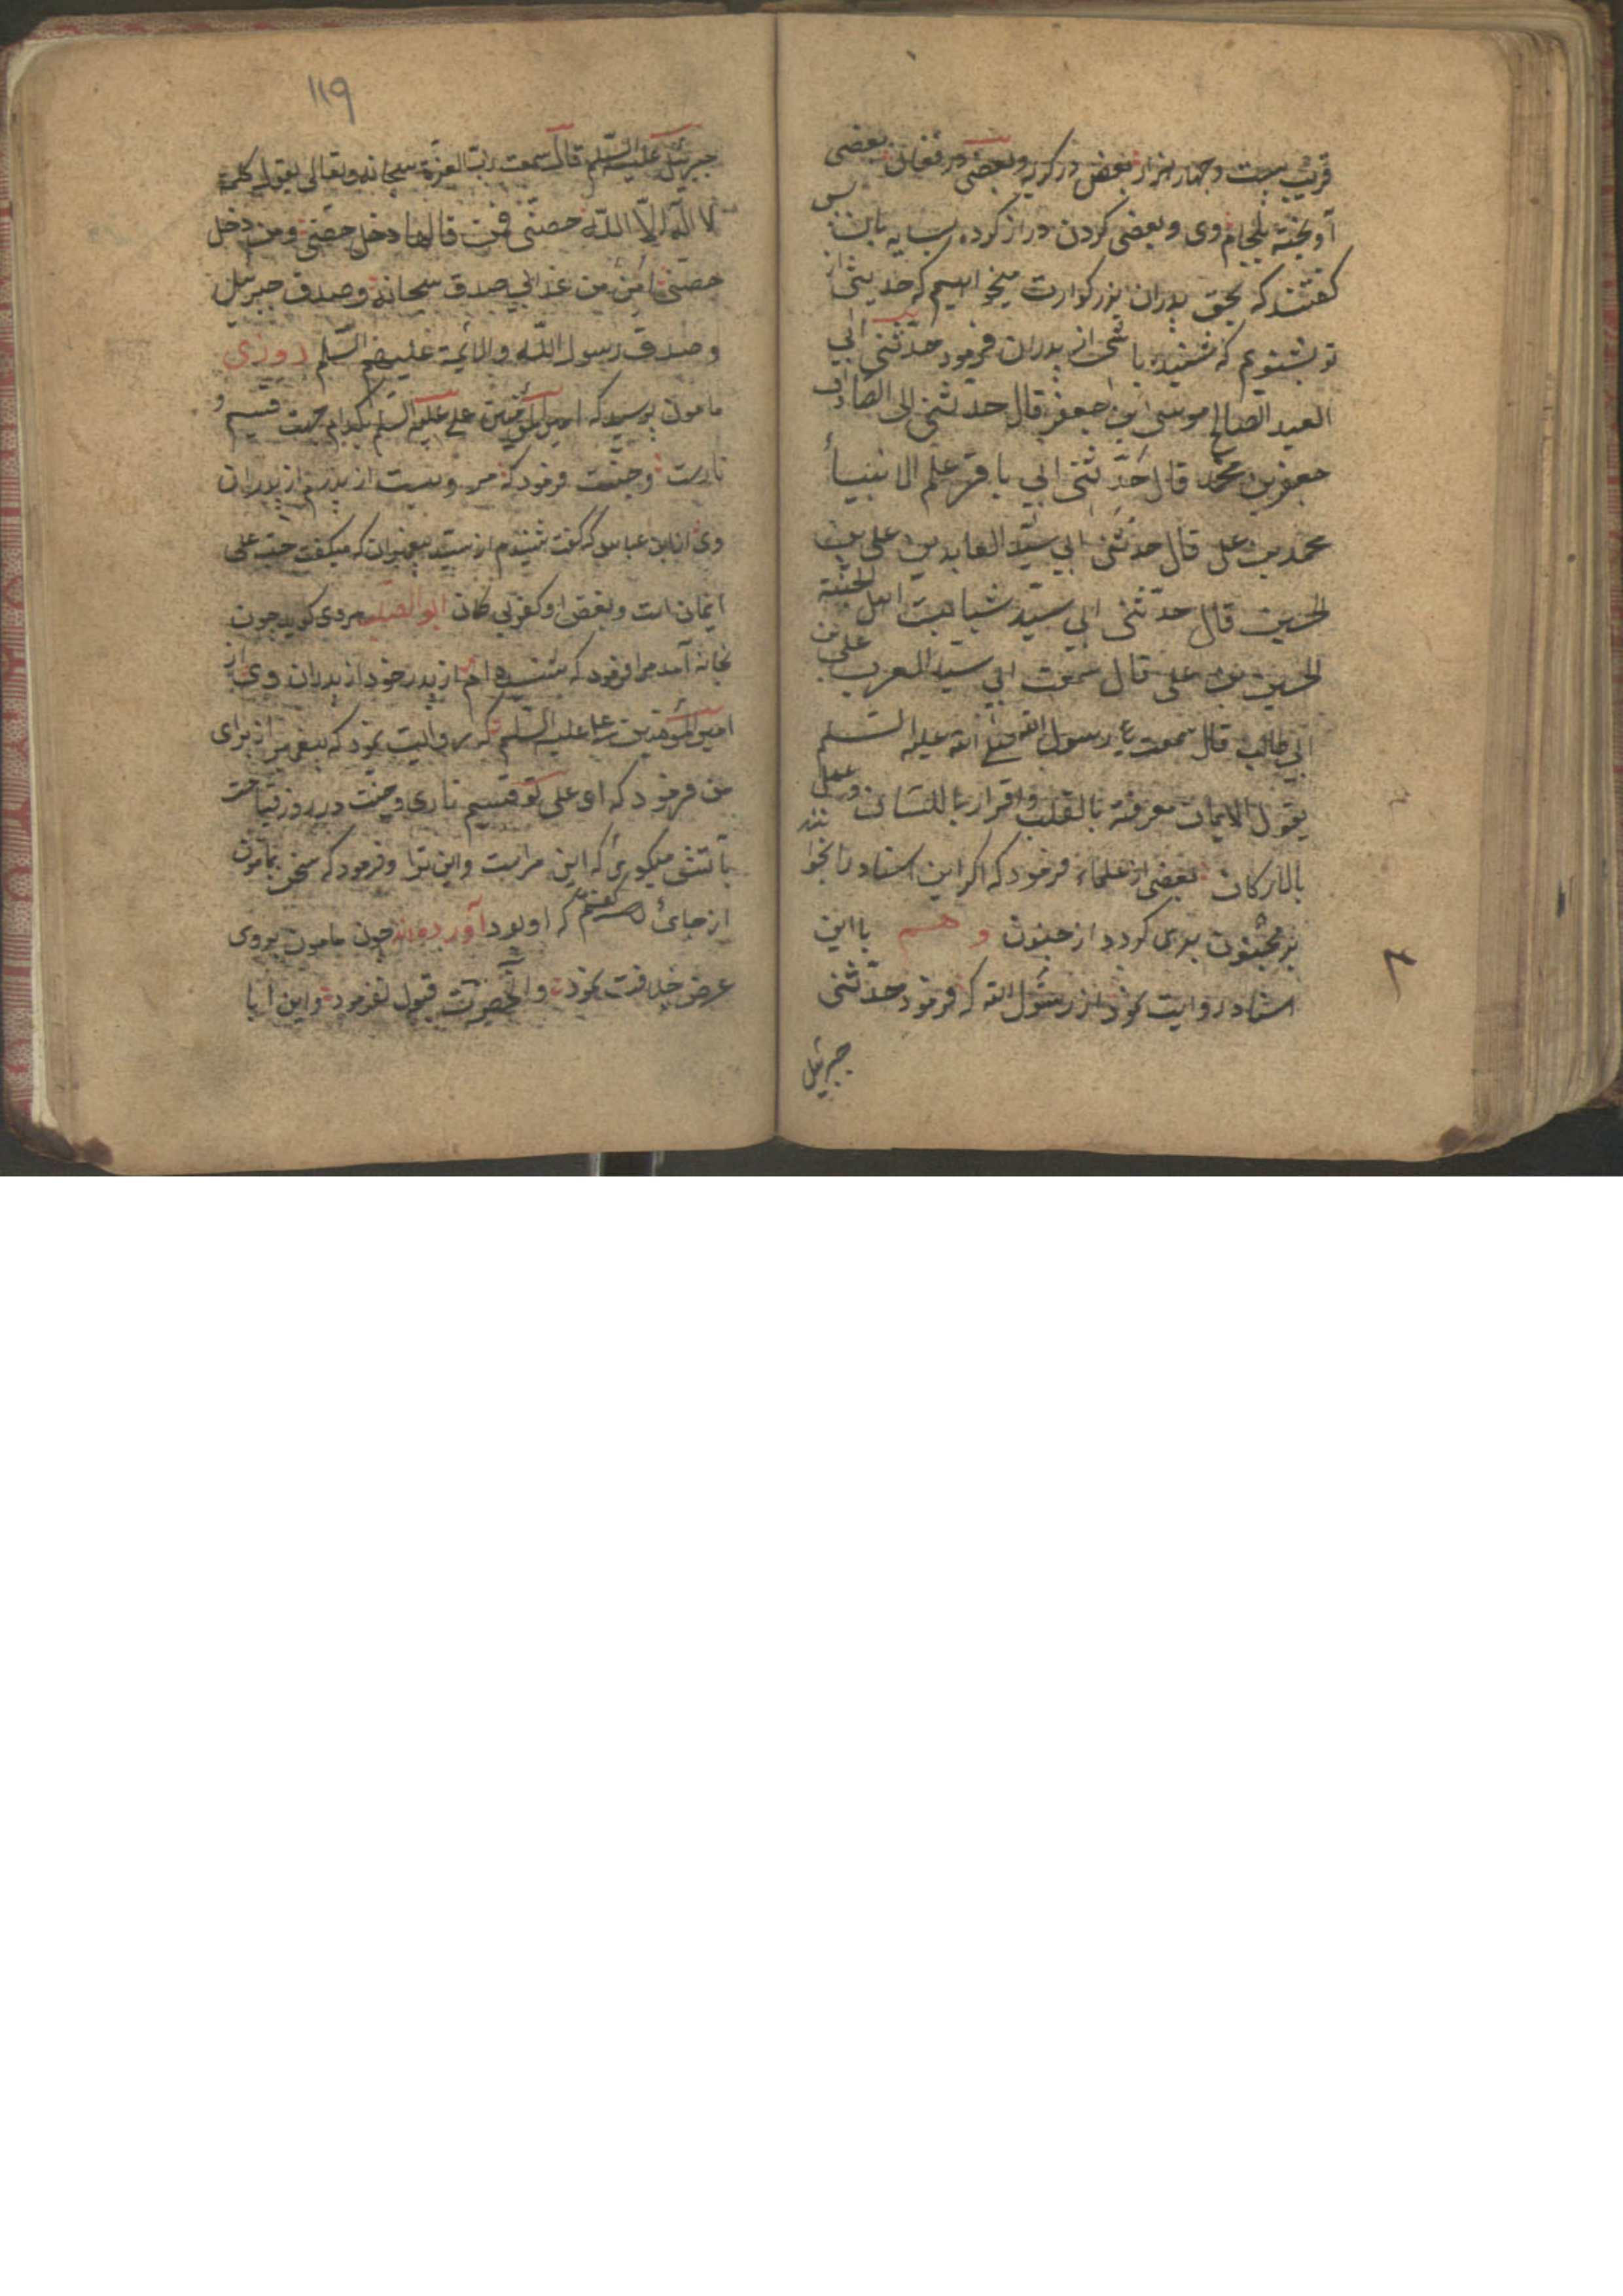 قریب بیست و چهار هزار بعضی در کریه و بعضی در فغان بعضی
آویخته بلجام وی و بعضی کردن دراز کرده بسایه بان پس
کفتند که بحق پدران بزرکوارت میخواهیم که حدیثی از
تو بشنویم که شنیده باشی از پدران فرمود حدّثنی ابی
العبد الصالح موسی ابن جعفر قال حدثنی ابی الصادق
جعفر بن محمد قال حدّثنی ابی باقر علم الانبیاء
محمد بن علی قال حدثنی ابی سیّد العابدین علی بن
الحسین قال حدّثنی ابی سیّد شباب اهل الجنّة
الحسین بن علی قال سمعت ابی سید العرب علی بن
ابی طالب قال سمعت رسول الله صلی الله علیه السلم
یقول الایمان معرفة بالقلب و اقرار باللسان و عمل
بالارکان بعضی از علماء فرمود که اکر این اسناد را بخوانند
بر مجنون بری کردد از جنون و هم با این
اسناد روایت نمود از رسول الله که فرمود حدّثنی
جبرئیل
۱۱۹
جبرئیل علیه السّلم قال سمعت ربّ العزة سبحانه و تعالی یقول کلمة
لا اله الّا اللّه حصنی فمن قالها دخل حصنی و من دخل
حصنی امن من عذابی صدق سبحانه و صدق جبرئیل
و صدق رسول اللّه و الائمة علیهم السّلم روزی
مامون پرسید که امیر المؤمنین علی علیه السلم بکدام جهت قسیم
نارست و جنّت فرمود که مرویست از پدرم از پدران
وی از ابن عباس که گفت شنیدم از سید پیغمبران که میکفت حبّ علی
ایمان است و بغض او کفر بی کمان ابو الصلت هروی کوید چون
بخانه آمد مرا فرمود که شنیده ام از پدر خود از پدران وی از
امیر المؤمنین علی علیه السّلم که روایت نمود که پیغمبر از برای
من فرمود که ای علی تو قسیم ناری و جنت در روز قیامت
بآتش میکوی که این مراست و این ترا و فرمود که سخن بمامون
از جائی گفتم که او بود آورده اند چون مامون بروی
عرض خلافت نمود و آنحضرت قبول نفرمود و این ابا